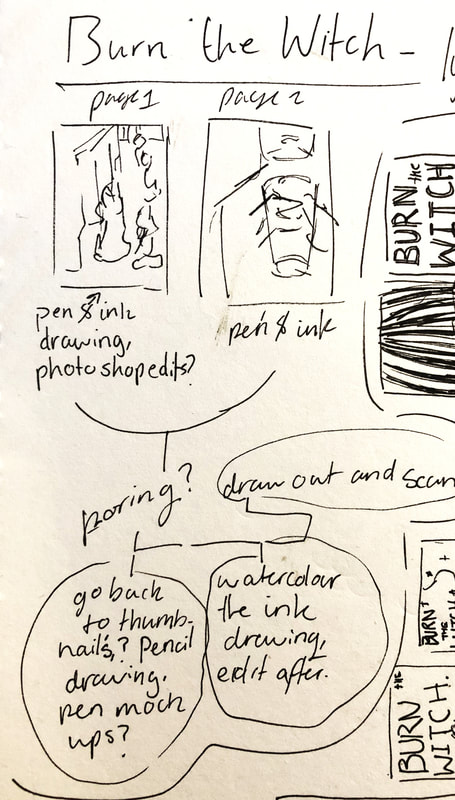 Burn the Witch -
page 1
page 2
pen & ink
drawing,
photoshop edits?
pen & ink
poring?
draw out and scan
go back
to thumb-
nails,? pencil
drawing,
pen mock
ups?
watercolour
the ink
drawing,
edit after.
BURN THE
WITCH
BURN
THE
BURN THE
WITCH.